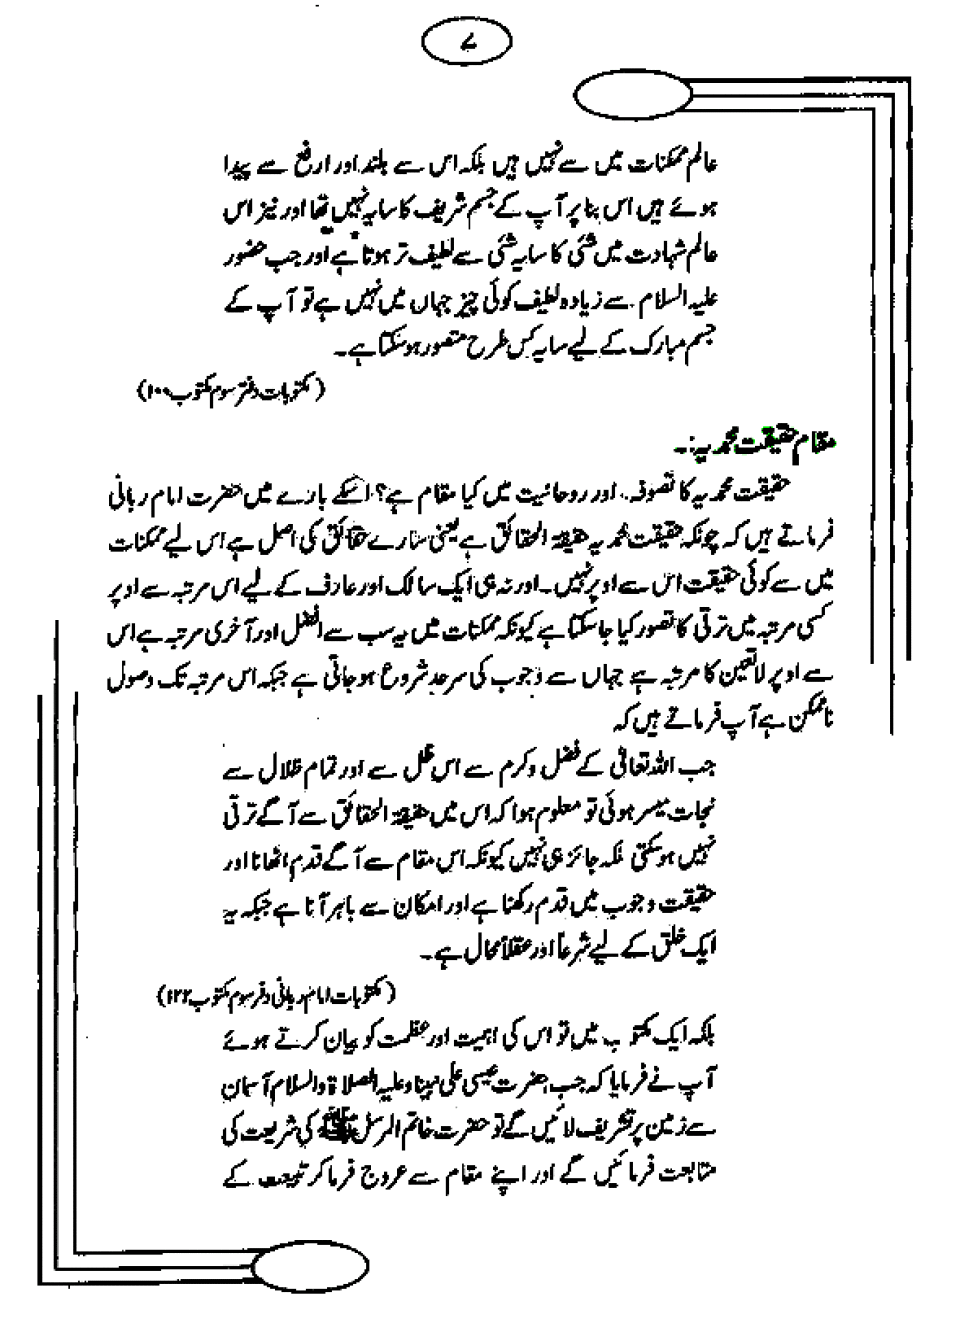 ۷
عالم ممکنات میں سے نہیں ہیں بلکہ اس سے بلند اور ارفع سے پیدا
ہوئے ہیں اس بنا پر آپ کے جسم شریف کا سایہ نہیں تھا اور نیز اس
عالم شہادت میں شئی کا سایہ شئی سے لطیف تر ہوتا ہے اور جب حضور
علیہ السلام سے زیادہ لطیف کوئی چیز جہاں میں نہیں ہے تو آپ کے
جسم مبارک کے لیے سایہ کس طرح متصور ہو سکتا ہے۔
(مکتوبات دفتر سوم مکتوب ۱۰۰)
مقام حقیقت محمدیہ:۔
حقیقت محمدیہ کا تصوف اور روحانیت میں کیا مقام ہے؟ اسکے بارے میں حضرت امام ربانی
فرماتے ہیں کہ چونکہ حقیقت محمدیہ حقیقۃ الحقائق ہے یعنی سارے حقائق کی اصل ہے اس لیے ممکنات
میں سے کوئی حقیقت اس سے اوپر نہیں۔ اور نہ ہی ایک سالک اور عارف کے لیے اس مرتبہ سے اوپر
کسی مرتبہ میں ترقی کا تصور کیا جا سکتا ہے کیونکہ ممکنات میں یہ سب سے افضل اور آخری مرتبہ ہے اس
سے اوپر لاتعین کا مرتبہ ہے جہاں سے وجوب کی سرحد شروع ہو جاتی ہے جبکہ اس مرتبہ تک وصول
ناممکن ہے آپ فرماتے ہیں کہ
جب اللہ تعالیٰ کے فضل وکرم سے اس ظل سے اور تمام ظلال سے
نجات میسر ہوئی تو معلوم ہوا کہ اس میں حقیقۃ الحقائق سے آگے ترقی
نہیں ہو سکتی بلکہ جائز ہی نہیں کیونکہ اس مقام سے آگے قدم اٹھانا اور
حقیقت وجوب میں قدم رکھنا ہے اور امکان سے باہر آنا ہے جبکہ یہ
ایک خلق کے لیے شرعاً اور عقلاً محال ہے۔
(مکتوبات امام ربانی دفتر سوم مکتوب ۱۲۲)
بلکہ ایک مکتوب میں تو اس کی اہمیت اور عظمت کو بیان کرتے ہوئے
آپ نے فرمایا کہ جب حضرت عیسی علی نبینا وعلیہ الصلاۃ والسلام آسمان
سے زمین پر تشریف لائیں گے تو حضرت خاتم المرسل ﷺ کی شریعت کی
متابعت فرمائیں گے اور اپنے مقام سے عروج فرما کر تبیعت کے